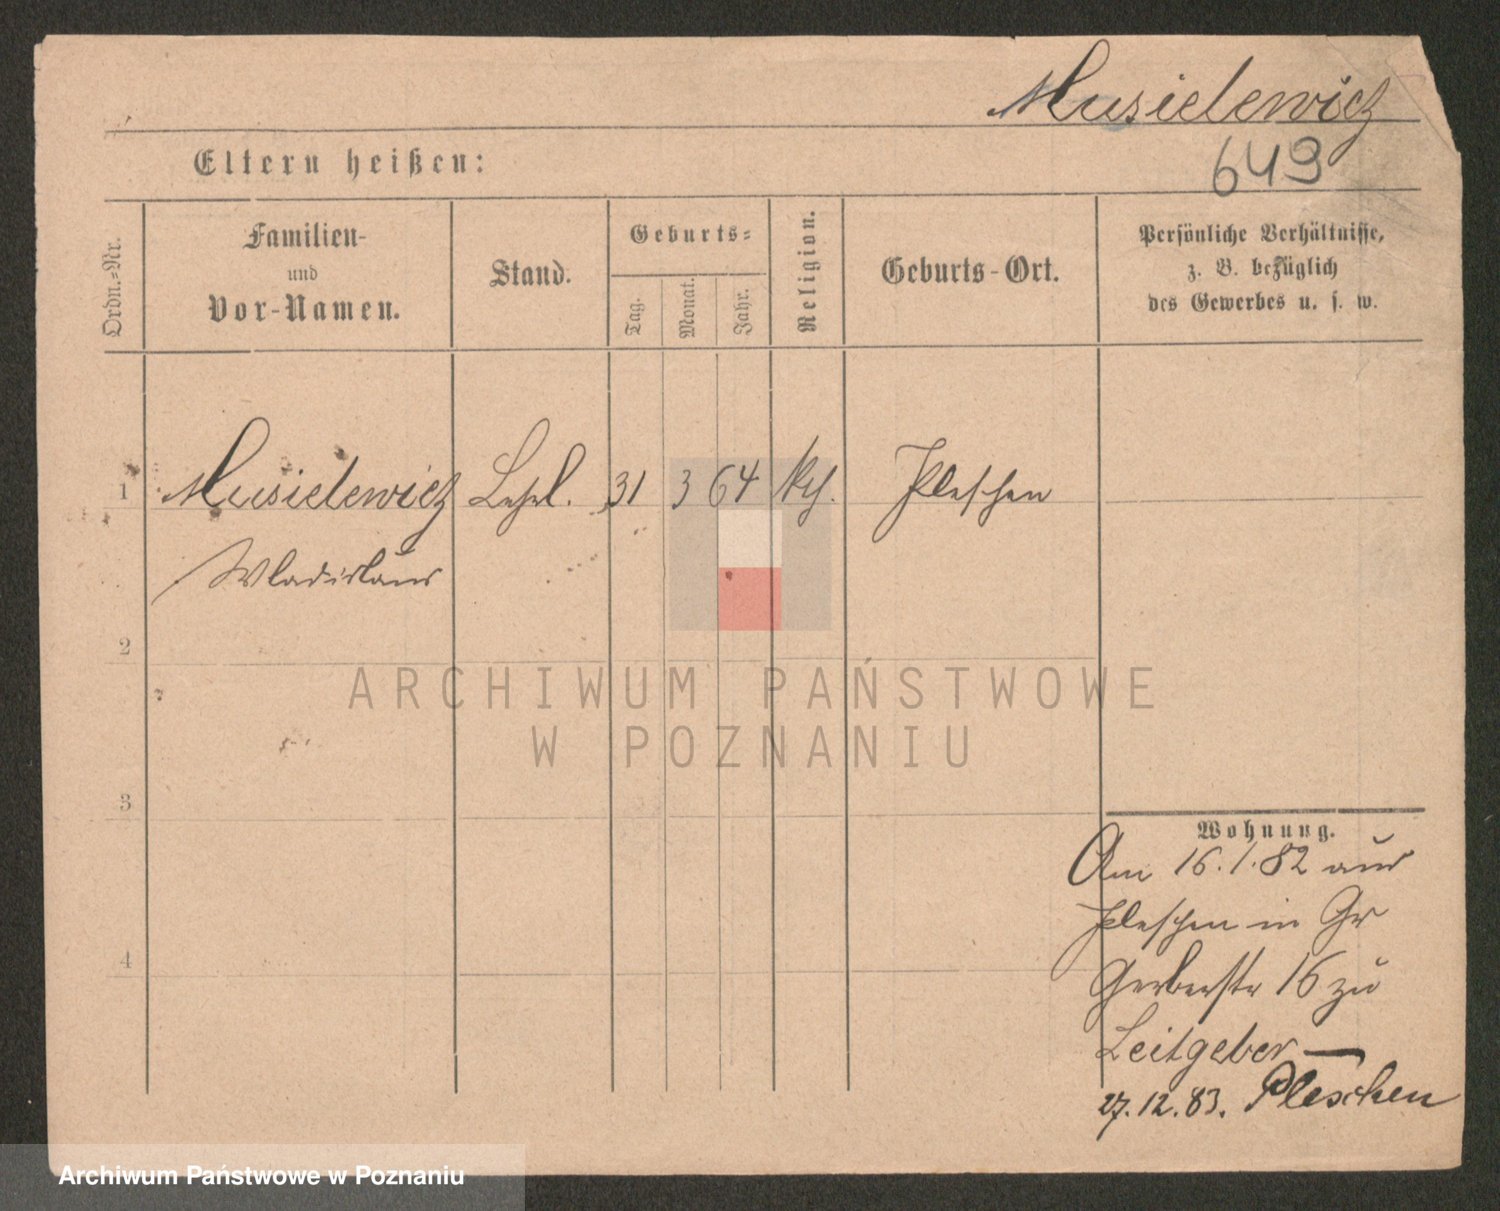 Musielewicz
Eltern heißen:
649
Ordn.-Nr.
Familien-
und
Vor-Namen.
Stand.
Geburts-
Tag.
Monat.
Jahr.
Religion.
Geburts-Ort.
Persönliche Verhältnisse,
z. B. bezüglich
des Gewerbes u. s. w.
1 Musielewicz Lehrl. 31 3 64 kth. Pleschen
Wladislaus
2
ARCHIWUM PAŃSTWOWE
W POZNANIU
3
Wohnung.
Am 16.1.82 aus
Pleschen in Gr
4
Gerberstr 16 zu
Leitgeber —
27.12.83. Pleschen
Archiwum Państwowe w Poznaniu